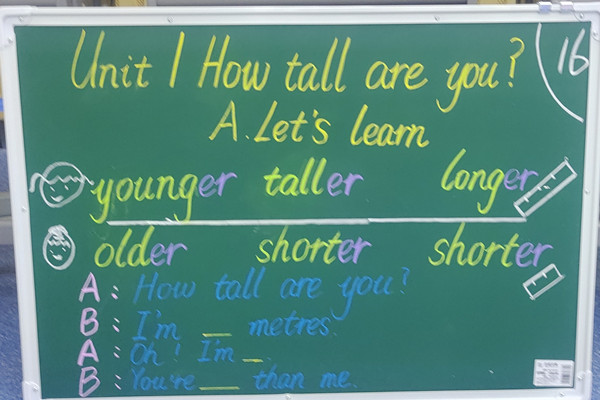 Unit 1 How tall are you?
16
A. Let's learn
younger taller longer
older shorter shorter
A: How tall are you?
B: I'm __ metres.
A: Oh! I'm __.
B: You're __ than me.